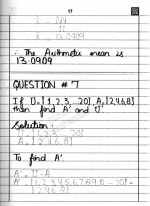 17
x̄ = NN
11
x̄ = 13.0909
∴ The Arithmetic mean is
13.0909
QUESTION # 7
If U = {1,2,3...20}, A = {2,4,6,8}
then find A' and U'
Solution:
U = {1,2,3...20}
A = {2,4,6,8}
To find A'
A' = U - A
A' = {1,2,3,4,5,6,7,8,9,10,...20} -
{2,4,6,8}